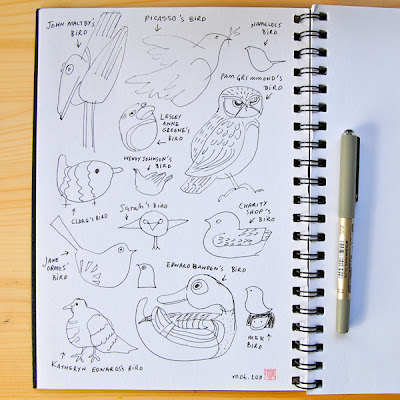 JOHN MALTBY'S
BIRD
PICASSO'S BIRD
NAMELESS
BIRD
PAM GRIMMOND'S
BIRD
LESLEY
ANNE
GREENE'S
BIRD
WENDY JOHNSON'S
BIRD
CLARE'S BIRD
Sarah's BIRD
CHARITY
SHOP'S
BIRD
JANE
ORMES'
BIRD
EDWARD BAWDEN'S BIRD
MEX
BIRD
KATHERYN EDWARDS'S BIRD